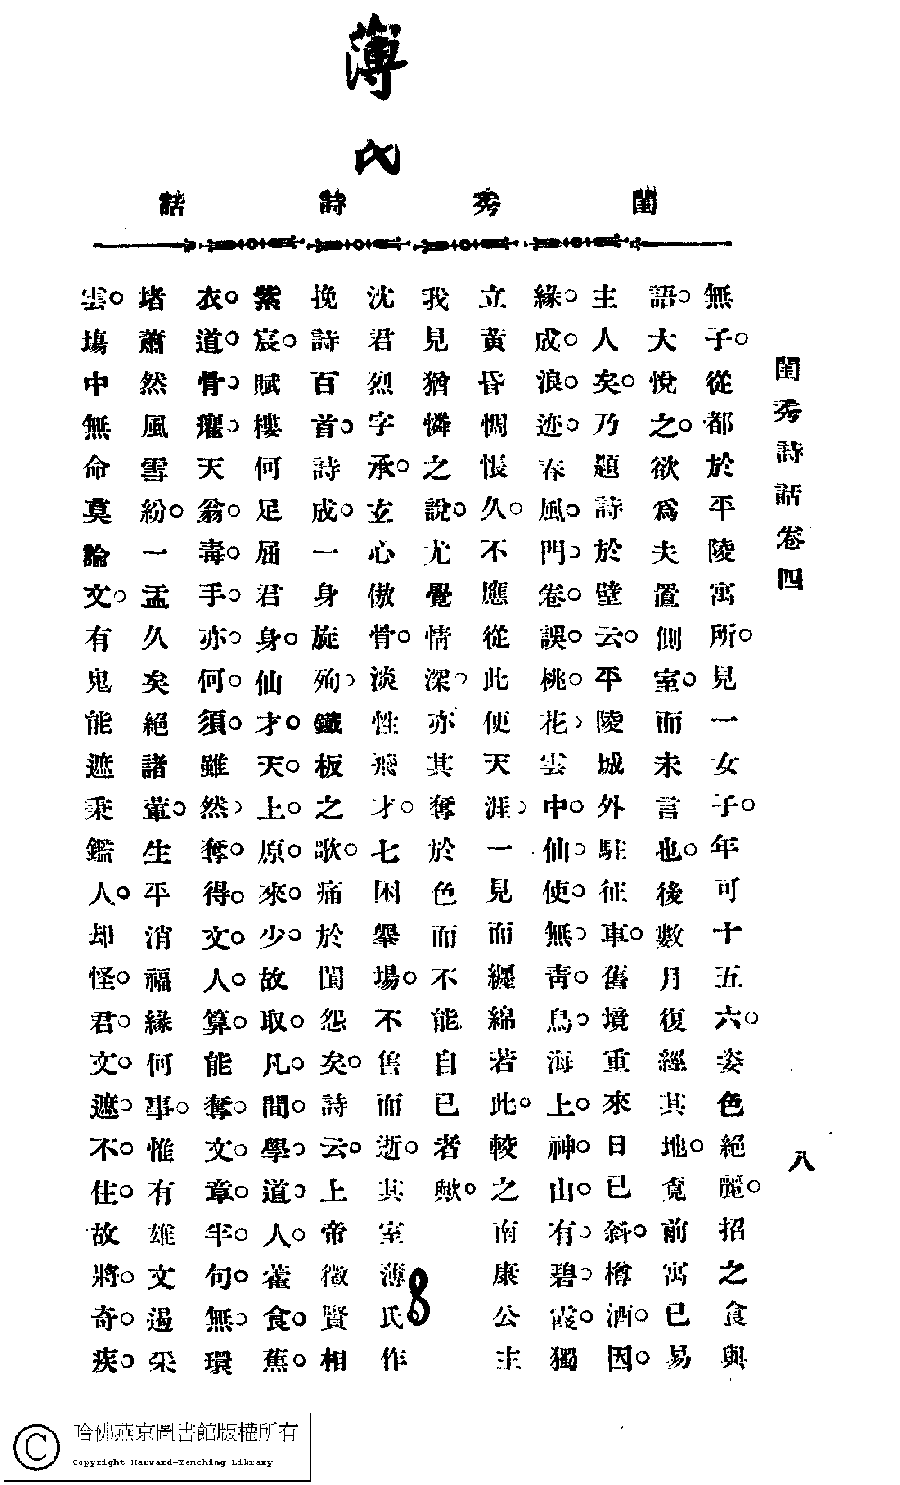 薄氏
閨秀詩話
閨秀詩話卷四
八
無子。從都於平陵寓所。見一女子。年可十五六。姿色絕麗。招之食與
語。大悅之。欲爲夫置側室。而未言也。後數月復經其地。竟前寓已易
主人矣。乃題詩於壁云。平陵城外駐征車。舊境重來日已斜。樽酒因。
緣。成浪迹。春風門巷誤桃花。雲中仙使無青鳥。海上神山有碧霞。獨
立黃昏惆悵久。不應從此便天涯。一見而纏綿若此。較之南康公主
我見猶憐之說。尤覺情深。亦其奪於色而不能自已者歟。
沈君烈字承。玄心傲骨。淡性飛才。七困舉場。不售而逝。其室薄氏作
挽詩百首。詩成。一身旋殉。鐵板之歌。痛於閨怨矣。詩云。上帝徵賢相
紫宸。賦樓何足屈君身。仙才。天。上。原。來。少。故取。凡。間。學。道。人。藿食。蕉。
衣。道。骨。癯。天翁。毒。手。亦。何。須。雖然。奪。得。文。人。算。能奪。文。章。半。句。無。環
堵蕭然風雪紛。一盂久矣絕諸葷。生平消福緣何事。惟有雄文遏采
雲。塲中無命莫論文。有鬼能遮秉鑑人。却怪。君。文。遮。不。住。故將。奇。疾。
8
哈佛燕京圖書館版權所有
Copyright Harvard-Yenching Library